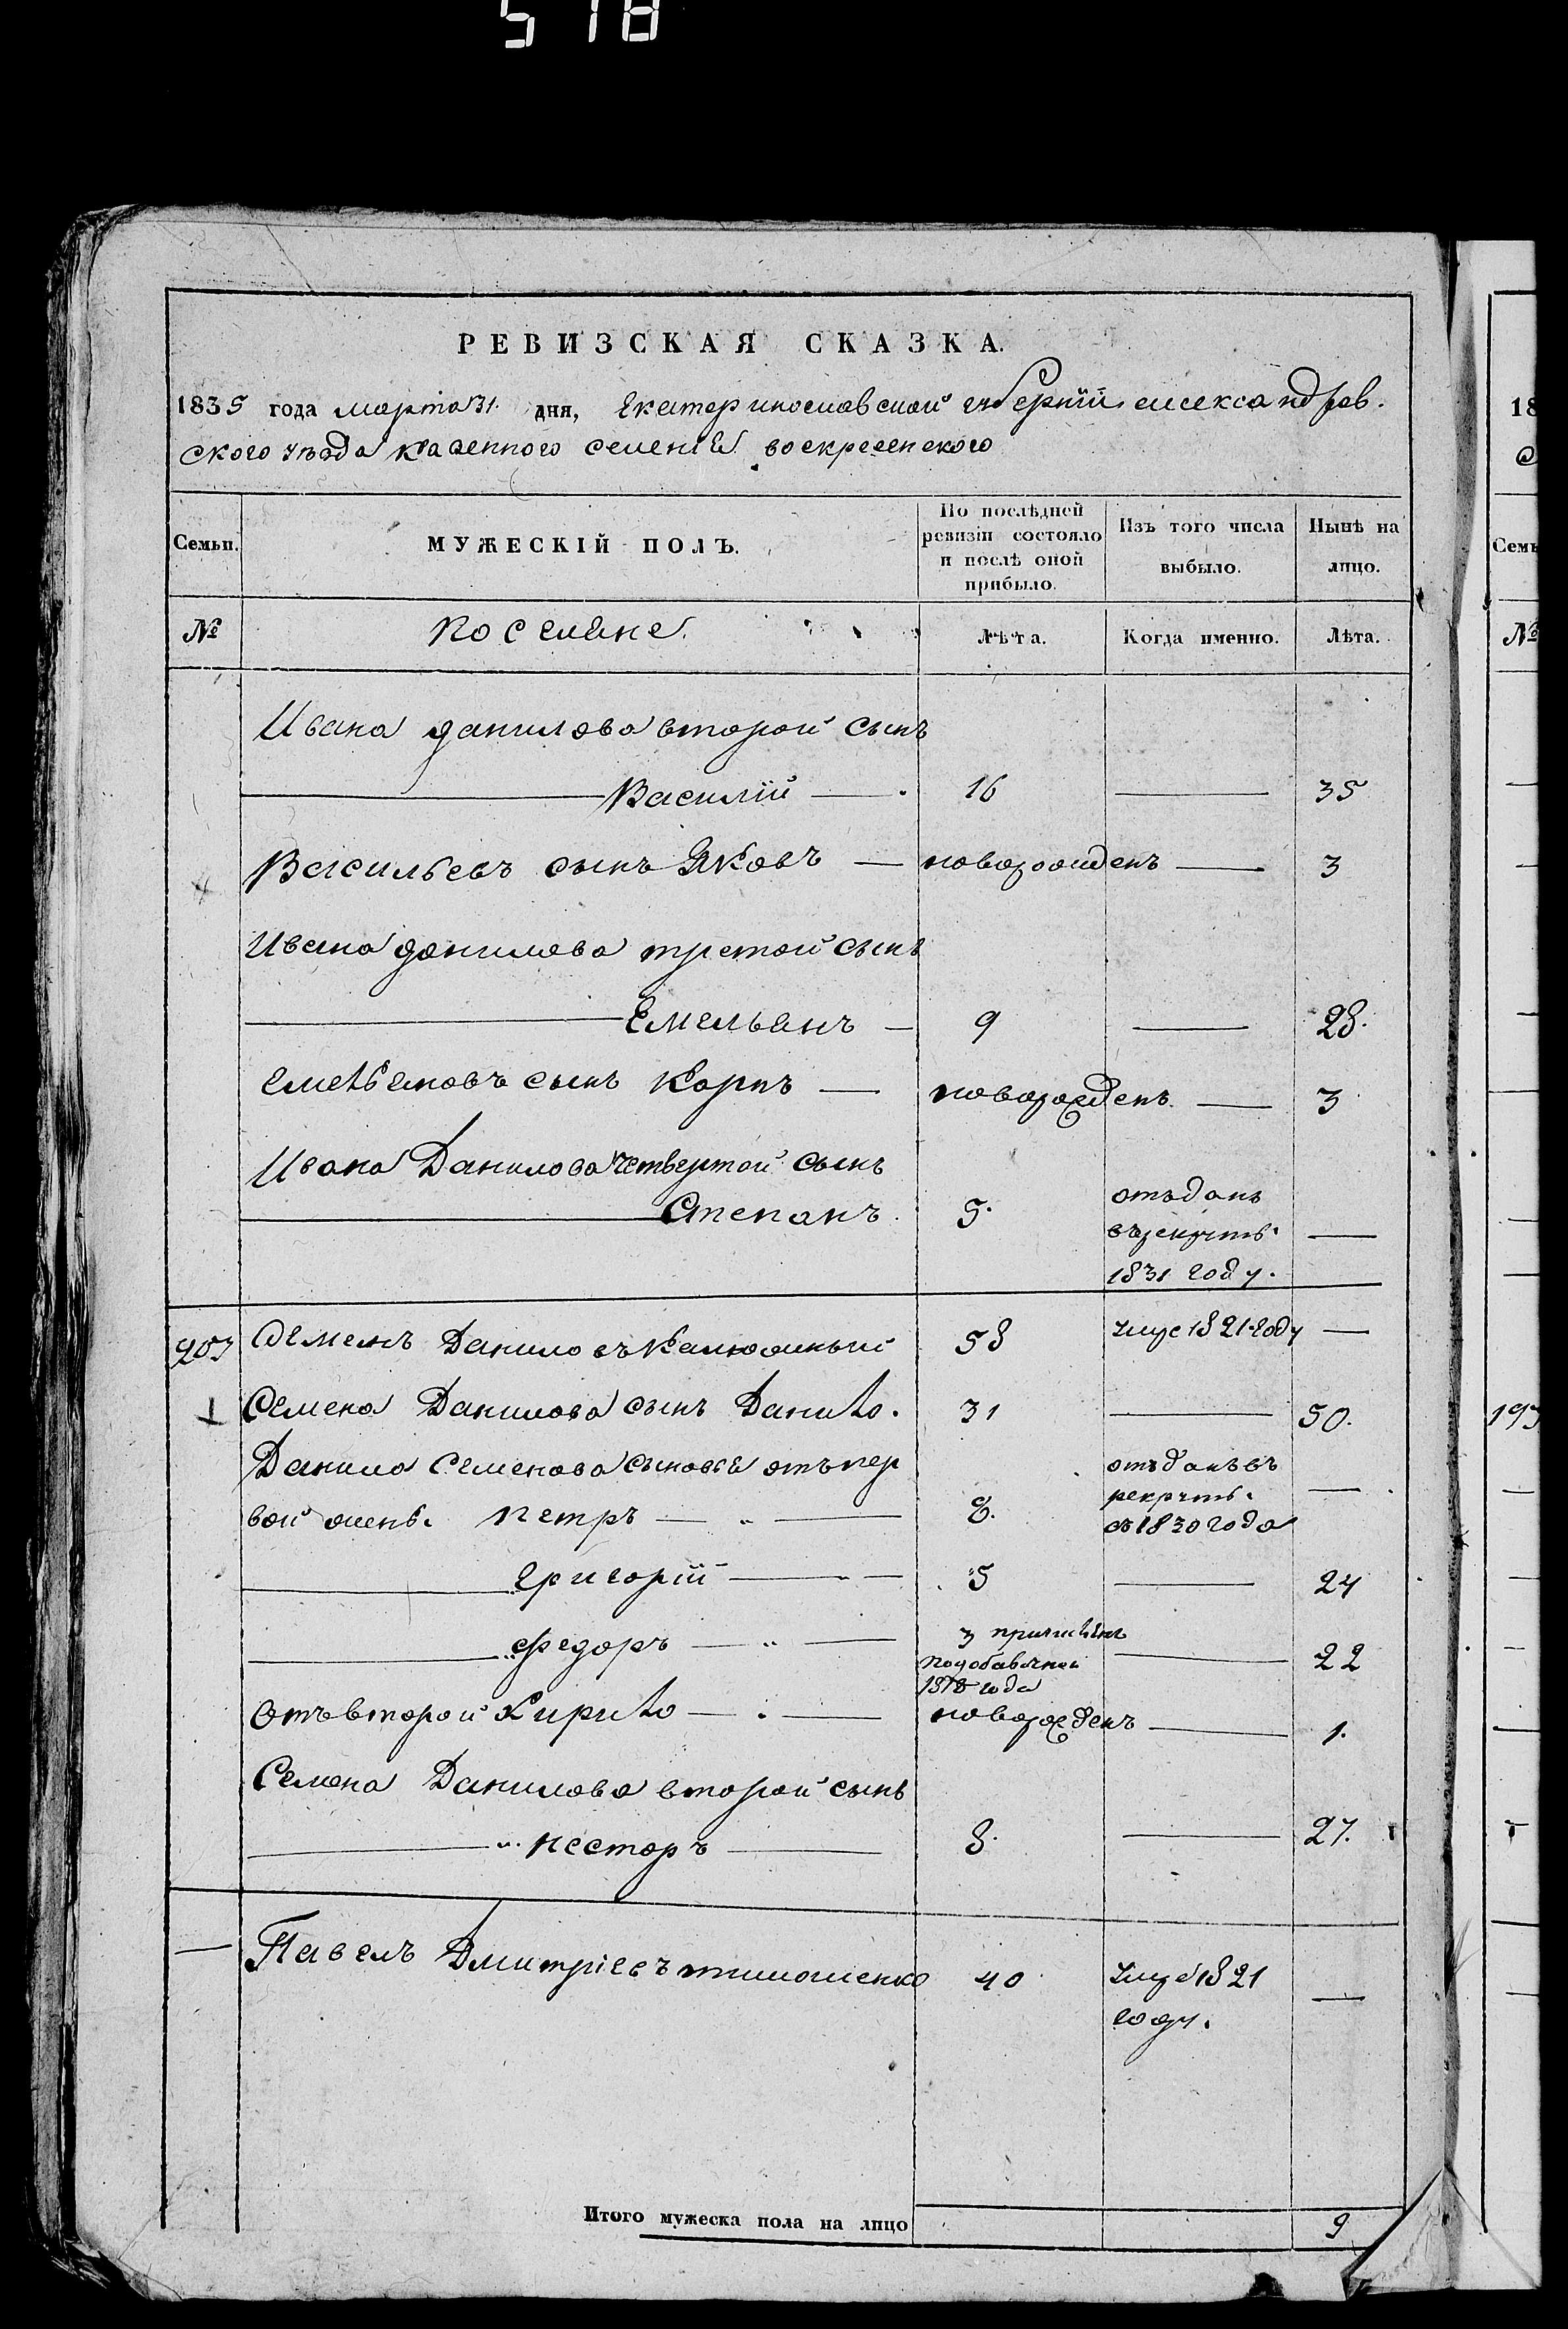 518
РЕВИЗСКАЯ СКАЗКА.
1835 года марта 31. дня, Екатеринославской губерніи александров.
ского уѣзда казенного селенія воскресенского
Семьи. МУЖЕСКІЙ ПОЛЪ. По послѣдней ревизіи состояло и послѣ оной прибыло. Изъ того числа выбыло. Нынѣ на лицо.
№ поселяне. Лѣта. Когда именно. Лѣта.
Ивана данилова второй сынъ
Василій 16 — 35
Васильевъ сынъ Яковъ — новорожденъ — 3
Ивана данилова третой сынъ
Емельянъ — 9 — 28.
емельяновъ сынъ Карпъ — новорожденъ — 3
Ивана Данилова четвертой сынъ
Степанъ 5. отъданъ
въ рекруты. —
1831 году.
203 Семенъ Даниловъ Калюжный 58 умре 1821 году —
Семена Данилова сынъ Данило. 31 — 50.
Данила Семенова сыновья отъ пер
вой жены. Петръ — 8. отъданъ въ
рекруты. —
съ 1830 года
Григорій — 5 — 24
Федоръ — 3 причисленъ
по добавочной — 22
1818 года
Отъ второй Кирило — новорожденъ — 1.
Семена Данилова второй сынъ
Несторъ — 8. — 27.
— Павелъ Дмитріевъ тимошенко 40 умре 1821 —
году.
Итого мужеска пола на лицо 9
18
С
Семь
№
193